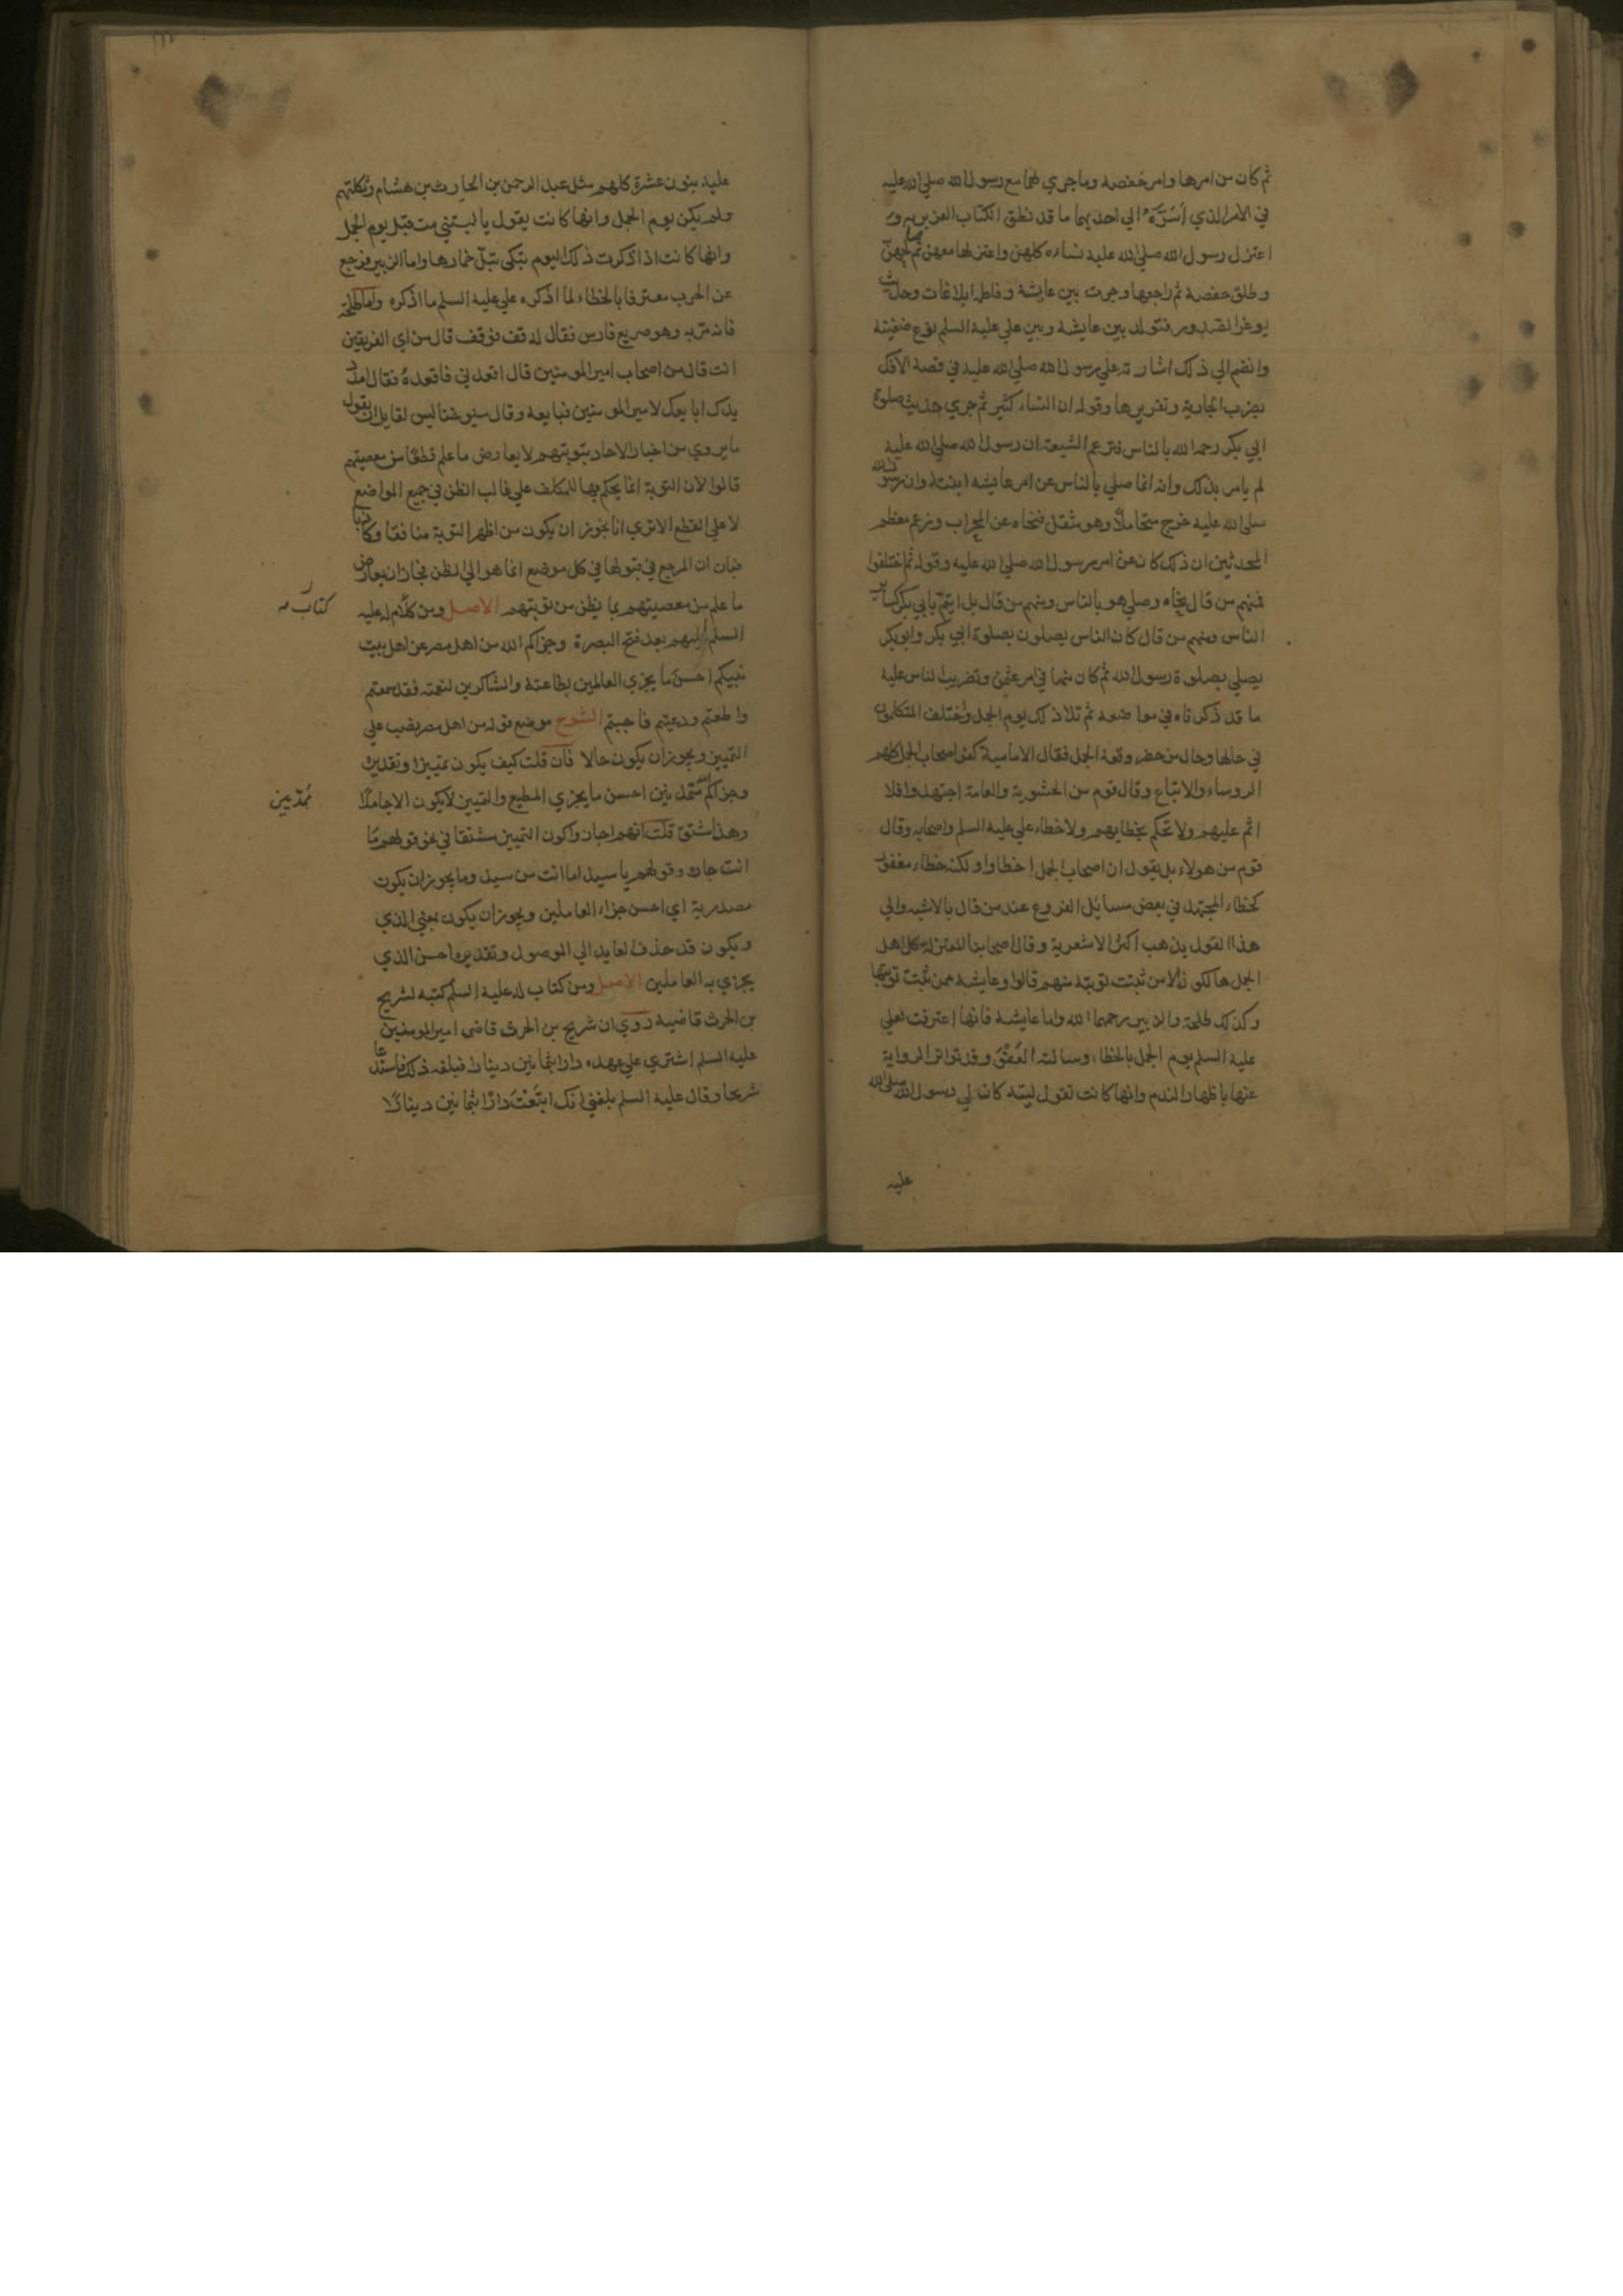 ثم كان من امرها وامر حفصة وما جرى لهما مع رسول الله صلى الله عليه
في الامر الذي أسَرَّه الى احديهما ما قد نطق الكتاب العزيز به و
اعتزل رسول الله صلى الله عليه نساءه كلهن واعتزلها معهن ثم صالحهن
وطلق حفصة ثم راجعها وجرت بين عايشة وفاطمة ابلاغات وحديث
يوغر الصدور فتولد بين عايشة وبين علي عليه السلم نوع ضغينة
وانضم الى ذلك اشارته علي رسول الله صلى الله عليه في قصة الافك
بضرب الجارية وتقريرها وقوله ان النساء كثير ثم جرى حديث صلوة
ابي بكر رحمه الله بالناس فتزعم الشيعة ان رسول الله صلى الله عليه
لم يامر بذلك وانه انما صلى بالناس عن امر عايشة ابنته وان رسول الله
صلى الله عليه خرج متحاملا وهو مثقل فنحاه عن المحراب ويزعم معظم
المحدثين ان ذلك كان عن امر رسول الله صلى الله عليه وقوله ثم اختلفوا
فمنهم من قال نحاه وصلى هو بالناس ومنهم من قال بل ايتم بابي بكر كساير
الناس ومنهم من قال كان الناس يصلون بصلوة ابي بكر وابو بكر
يصلي بصلوة رسول الله ثم كان منها في امر عثمن وتضريب الناس عليه
ما قد ذكرناه في مواضعه ثم تلا ذلك يوم الجمل واختلف المتكلمون
في حالها وحال من حضر وقعة الجمل فقال الامامية كفر اصحاب الجمل كلهم
الروساء والاتباع وقال قوم من الحشوية والعامة اجتهدوا فلا
اثم عليهم ولا نحكم بخطايهم ولا خطاء علي عليه السلم واصحابه وقال
قوم من هولاء بل يقول ان اصحاب الجمل اخطاوا ولكنه خطاء مغفور
كخطاء المجتهد في بعض مسائل الفروع عند من قال بالاشبه والى
هذا القول يذهب اكثر الاشعرية وقال اصحابنا المعتزلة كل اهل
الجمل هالكون الا من ثبتت توبته منهم قالوا وعايشة ممن ثبتت توبتها
وكذلك طلحة والزبير رحمهما الله واما عايشة فانها اعترفت لعلي
عليه السلم يوم الجمل بالخطاء وسالته العَفْوَ وقد تواتر الرواية
عنها باظهار الندم وانها كانت تقول ليته كان لي من رسول الله صلى الله
عليه
عليه بنون عشرة كلهم مثل عبد الرحمن بن الحارث بن هشام وثكلتهم
ولم يكن يوم الجمل وانها كانت يقول يا ليتني مت قبل يوم الجمل
وانها كانت اذا ذكرت ذلك اليوم تبكي حتى تبل خمارها واما الزبير فرجع
عن الحرب معترفا بالخطاء لما اذكره علي عليه السلم ما اذكره واما طلحة
فانه مر به وهو صريع فارس فقال له قف فوقف قال من اي الفريقين
انت قال من اصحاب امير المومنين قال اقعدني فاقعدهُ فقال امدد
يدك ابايعك لامير المومنين فبايعه وقال شيوخنا ليس لقايل ان يقول
ما يروي من اخبار الاحاد بتوبتهم لا يعارض ما علم قطعا من معصيتهم
قالوا لان التوبة انما يحكم بها للمكلف على غالب الظن في جميع المواضع
لا على القطع الا ترى انا نجوز ان يكون من اظهر التوبة منافقا وكاذبا
فبان ان المرجع في قبولها في كل موضع انما هو الى الظن فجاز ان يعارض
ما علم من معصيتهم بما يظن من توبتهم الاصل ومن كلام له عليه
كتاب
السلم اليهم بعد فتح البصرة وجزاكم الله من اهل مصر عن اهل بيت
نبيكم احسن ما يجزي العالمين بطاعته والشاكرين لنعمته فقد سمعتم
واطعتم ودعيتم فاجبتم الشرح موضع قوله من اهل مصر نصب على
التمييز ويجوز ان يكون حالا فان قلت كيف يكون تمييزا وتقديره
وجزاكم الله متمدنين احسن ما يجزي المطيع والتمييز لا يكون الا جامدا
وهذا مشتق قلت انهم اجازوا كون التمييز مشتقا في نحو قولهم ما
انت جارة وقولهم يا سيدا ما انت من سيد وما يجوز ان يكون
مصدرية اي احسن جزاء العاملين ويجوز ان يكون بمعنى الذي
ويكون قد حذف العايد الى الموصول وتقديره احسن الذي
يجزي به العاملين الاصل ومن كتاب له عليه السلم كتبه لشريح
بن الحرث قاضيه روي ان شريح بن الحرث قاضي امير المومنين
عليه السلم اشترى على عهده دارا بثمانين دينارا فبلغه ذلك فاستدعا
شريحا وقال عليه السلم بلغني انك ابتَعْتَ دارًا بثمانين دينارًا